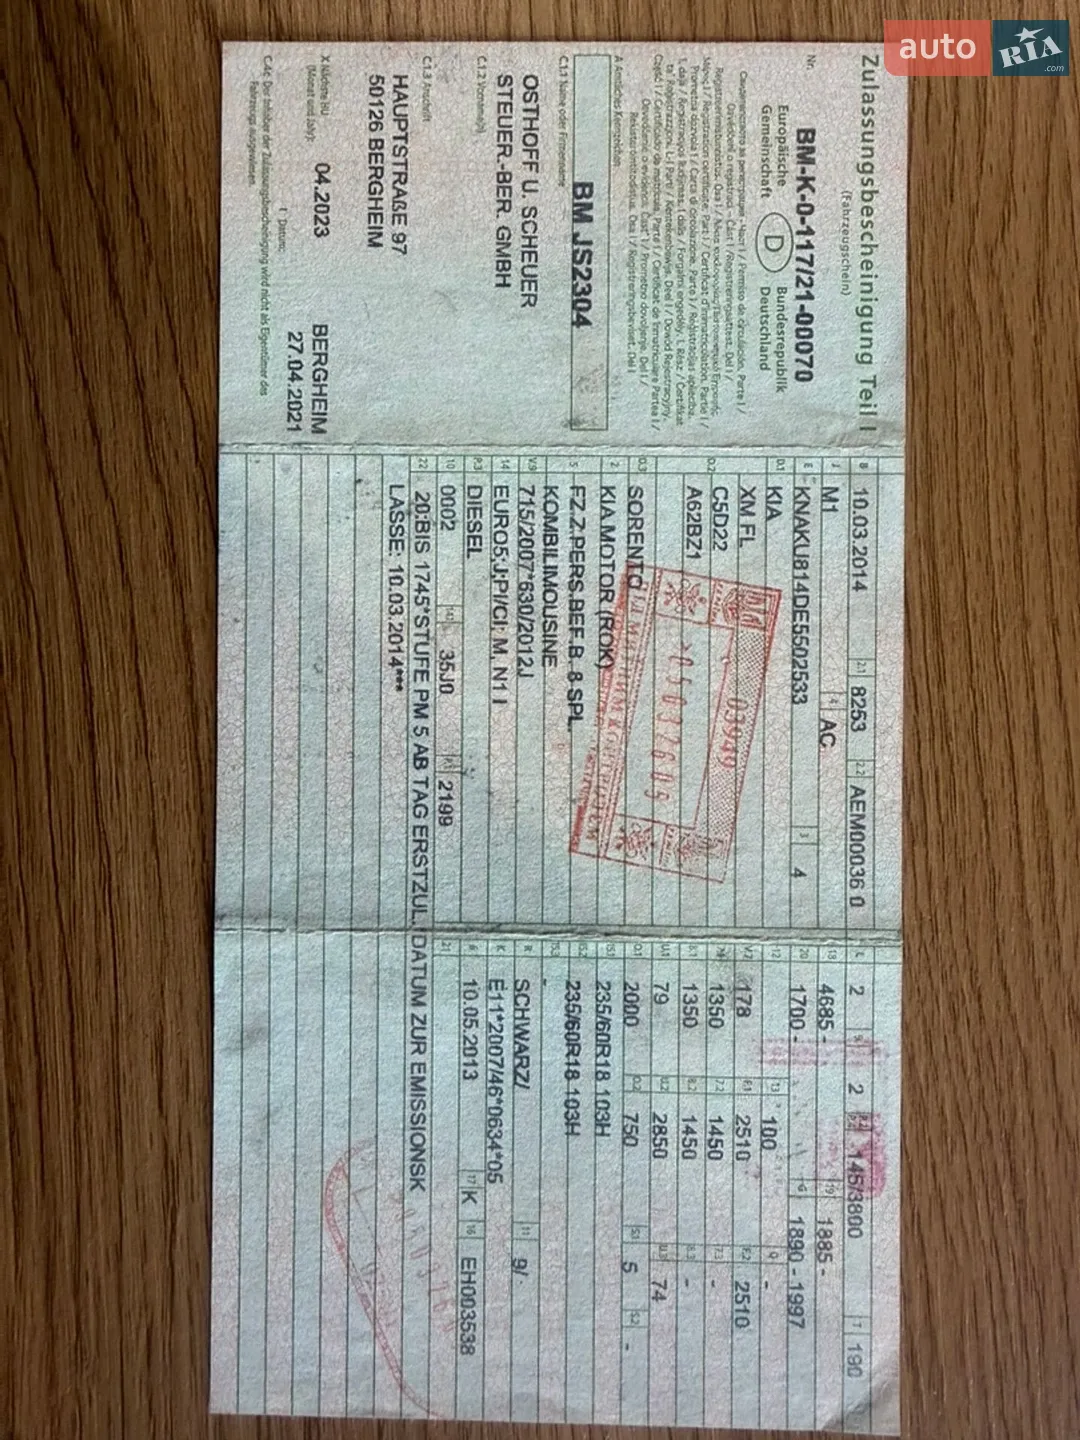 auto RIA.com
Zulassungsbescheinigung Teil I
(Fahrzeugschein)
Nr. BM-K-0-117/21-00070
Europäische Gemeinschaft
D
Bundesrepublik Deutschland
A Amtliches Kennzeichen
BM JS2304
C.1.1 Name oder Firmenname
OSTHOFF U. SCHEUER
STEUER.-BER. GMBH
C.1.2 Vorname(n)
C.1.3 Anschrift
HAUPTSTRAßE 97
50126 BERGHEIM
X Nächste HU
(Monat und Jahr): 04.2023
BERGHEIM
I Datum: 27.04.2021
C.4c Der Inhaber der Zulassungsbescheinigung wird nicht als Eigentümer des
Fahrzeugs ausgewiesen.
B 10.03.2014 2.1 8253 2.2 AEM00036 0
J M1 4 AC
E KNAKU814DE5502533 3 4
D.1 KIA
XM FL
D.2 C5D22
A62BZ1
D.3 SORENTO
2 KIA MOTOR (ROK)
5 FZ.Z.PERS.BEF.B. 8 SPL.
KOMBILIMOUSINE
V.9 715/2007*630/2012J
14 EURO5;J;PI/CI; M, N1 I
P.3 DIESEL
10 0002 14.1 35J0 P.1 2199
22 20:BIS 1745*STUFE PM 5 AB TAG ERSTZUL. DATUM ZUR EMISSIONSK
LASSE: 10.03.2014***
03949
L 2 9 2 145/3800 T 190
18 4685 - 19 1885 -
20 1700 - G 1890 - 1997
12 13 100 Q -
V.7 178 F.1 2510 F.2 2510
1350 7.2 1450 7.3 -
8.1 1350 8.2 1450 8.3 -
U.1 79 U.2 2850 U.3 74
O.1 2000 O.2 750 S.1 5 S.2 -
15.1 235/60R18 103H
15.2 235/60R18 103H
15.3 -
R SCHWARZ/ 11 9/
K E11*2007/46*0634*05
6 10.05.2013 17 K 16 EH003538
21